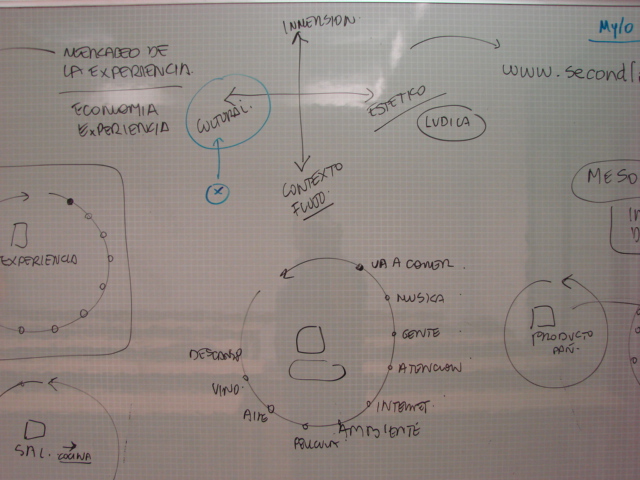 MERCADEO DE
LA EXPERIENCIA.
ECONOMIA
EXPERIENCIA
INMERSION.
CULTURAL.
ESTETICO
LUDICA
CONTEXTO
FLUJO.
X
My/o
www.second
MESO
EXPERIENCIA
VA A COMER.
MUSICA
GENTE
ATENCION
INTERNET.
AMBIENTE
PELICULA
AIRE
VINO.
DESCANSO
PRODUCTO
SAL. → COCINA